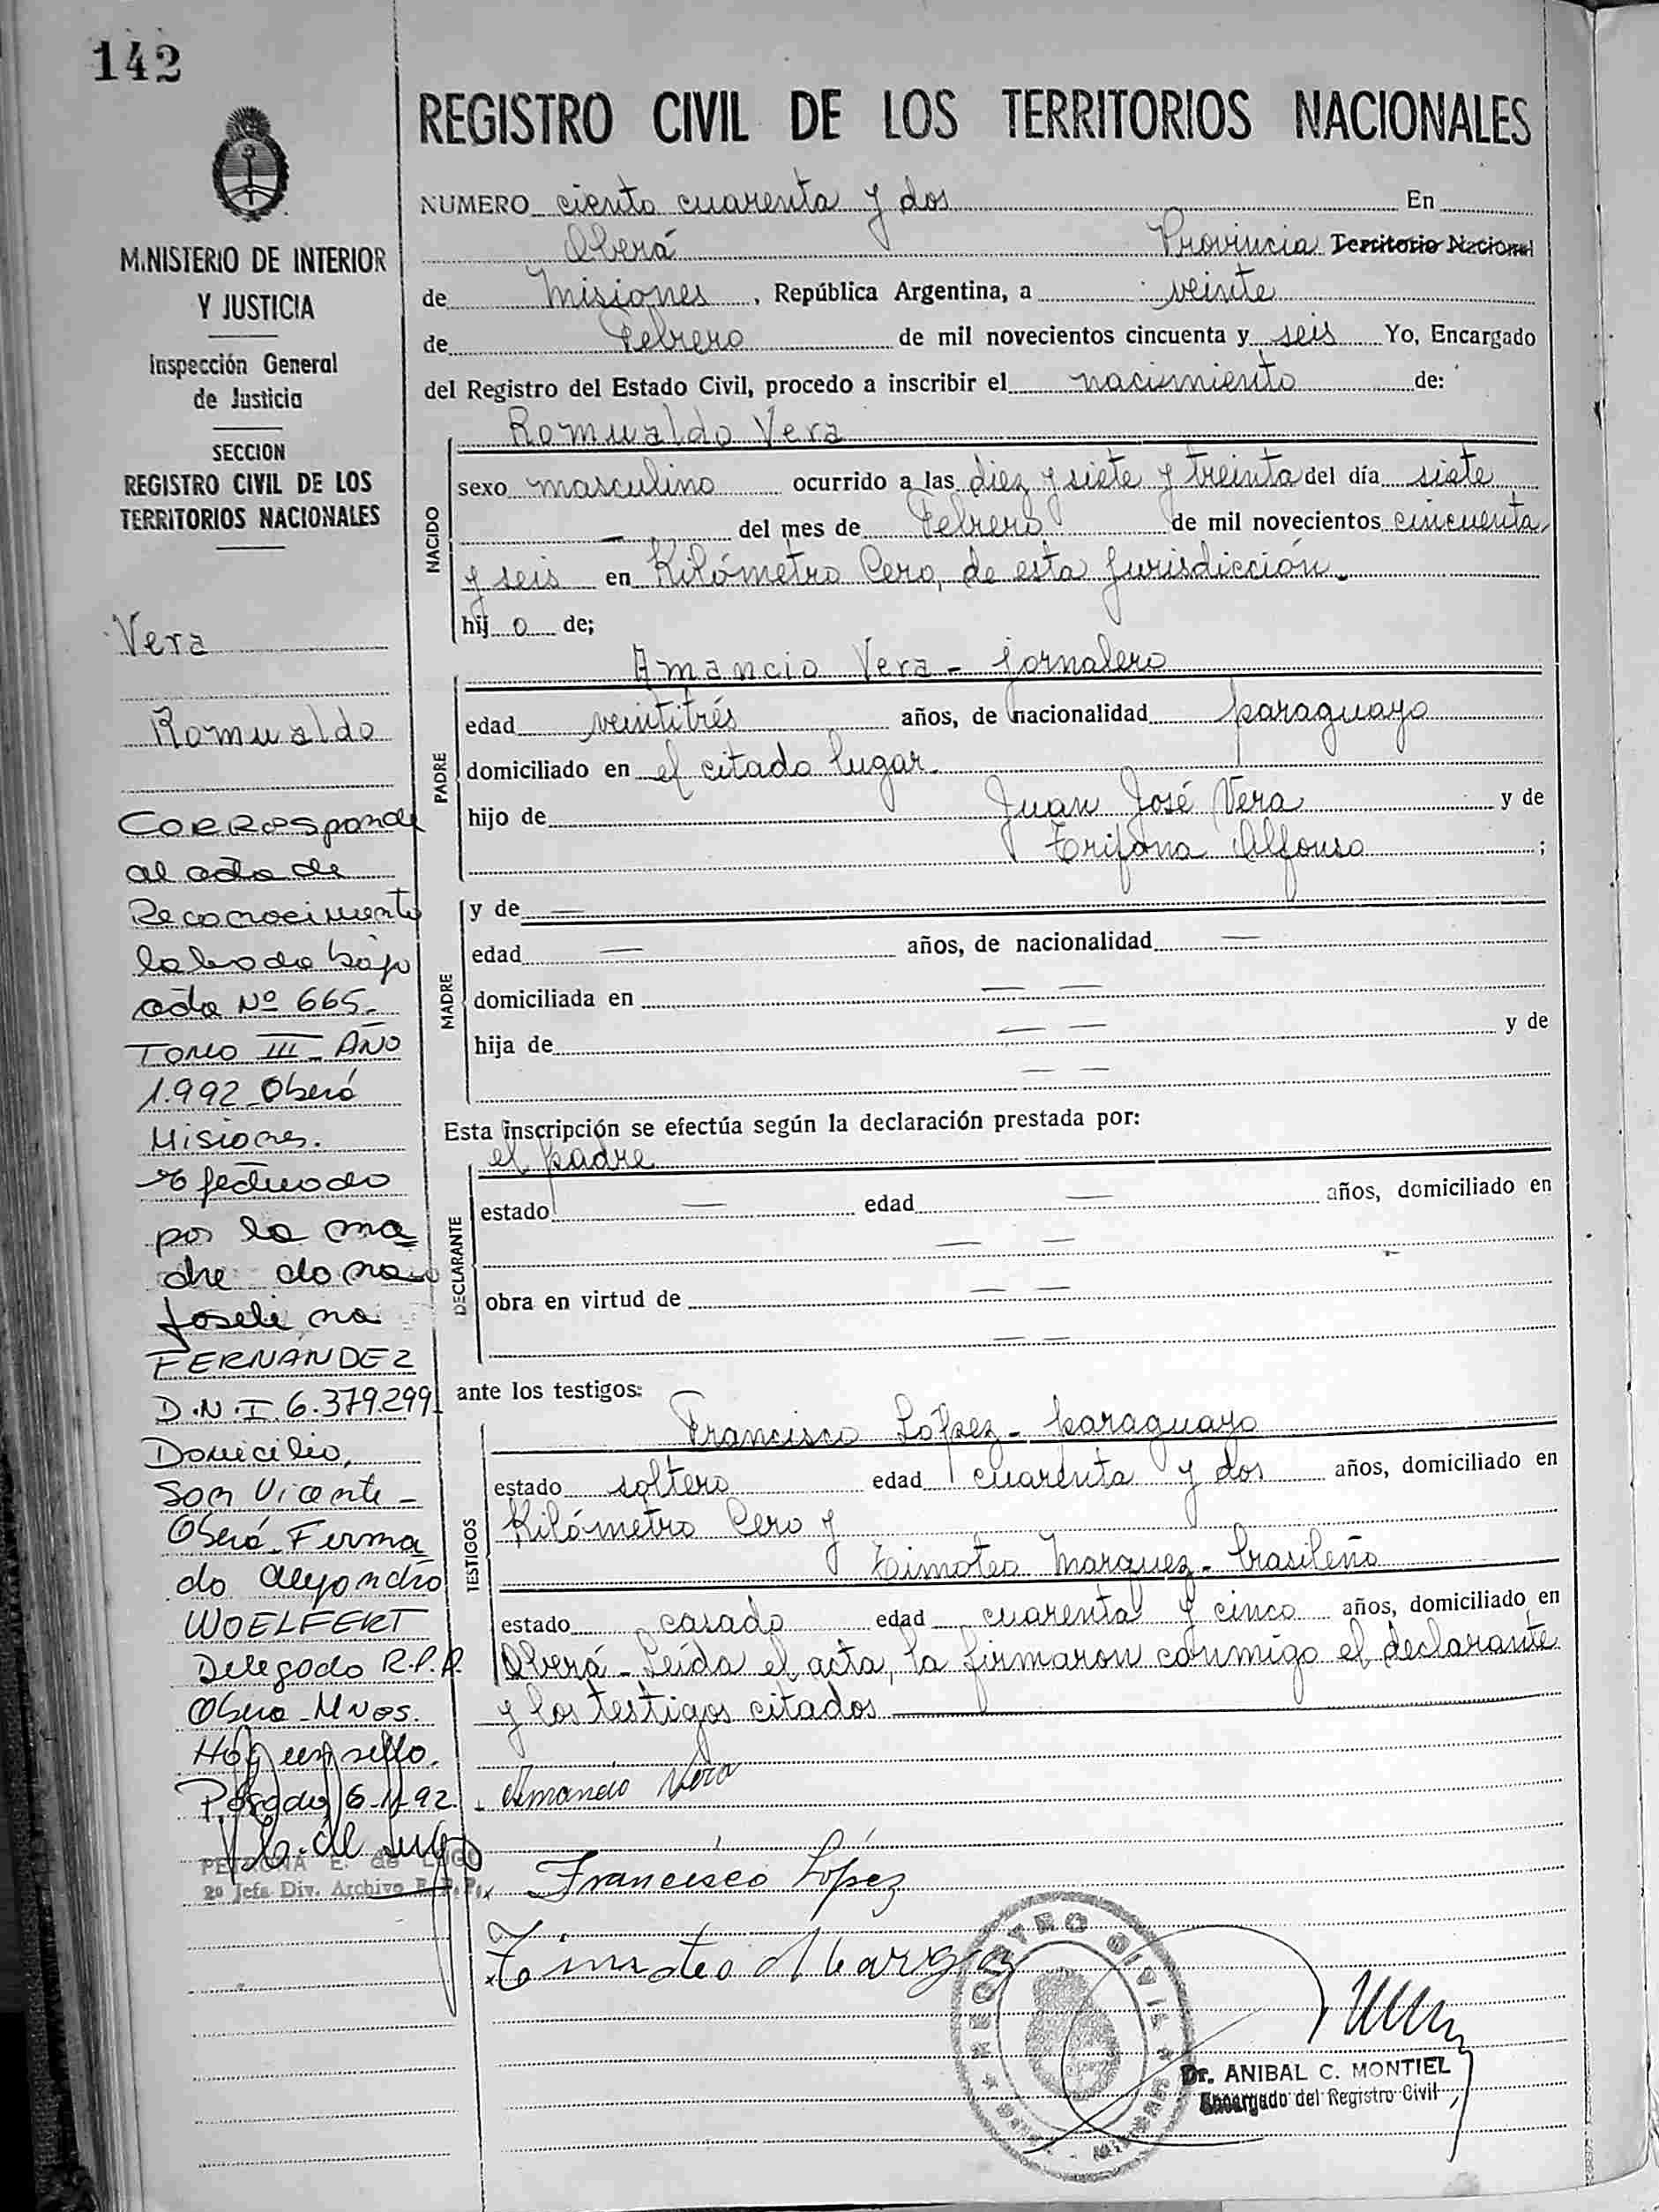 142
REGISTRO CIVIL DE LOS TERRITORIOS NACIONALES
MINISTERIO DE INTERIOR
Y JUSTICIA
Inspección General
de Justicia
SECCION
REGISTRO CIVIL DE LOS
TERRITORIOS NACIONALES
Vera
Romualdo
Corresponde
al acta de
Reconocimiento
labrada bajo
acta Nº 665.
Tomo III - Año
1.992 - Oberá
Misiones.
Efectuado
por la ma
dre doña
Joseli na
FERNÁNDEZ
D.N.I. 6.379.299
Domicilio,
San Vicente -
Oberá - Firma
do Alejandro
WOELFERT
Delegado R.P.P.
Oberá - Mnes.
Hay un sello.
Posadas 6-11-92.
PETRONA E. de LUGO
2º Jefa Div. Archivo R.P.P.
NUMERO ciento cuarenta y dos En
Oberá Provincia Territorio Nacional
de Misiones, República Argentina, a veinte
de Febrero de mil novecientos cincuenta y seis Yo, Encargado
del Registro del Estado Civil, procedo a inscribir el nacimiento de:
Romualdo Vera
NACIDO
sexo masculino ocurrido a las diez y siete y treinta del día siete
— del mes de Febrero de mil novecientos cincuenta
y seis en Kilómetro Cero, de esta jurisdicción.
hijo de;
Amancio Vera - jornalero
PADRE
edad veintitrés años, de nacionalidad paraguayo
domiciliado en el citado lugar.
hijo de Juan José Vera y de
Trifona Alfonso ;
MADRE
y de —
edad — años, de nacionalidad —
domiciliada en — —
hija de — — y de
— —
Esta inscripción se efectúa según la declaración prestada por:
el padre
DECLARANTE
estado — edad — años, domiciliado en
— —
obra en virtud de — —
— —
ante los testigos:
Francisco López - paraguayo
TESTIGOS
estado soltero edad cuarenta y dos años, domiciliado en
Kilómetro Cero y
Timoteo Marquez - brasileño
estado casado edad cuarenta y cinco años, domiciliado en
Oberá - Leída el acta, la firmaron conmigo el declarante
y los testigos citados
Amancio Vera
Francisco López
Timoteo
REGISTRO CIVIL
Dr. ANIBAL C. MONTIEL
Encargado del Registro Civil